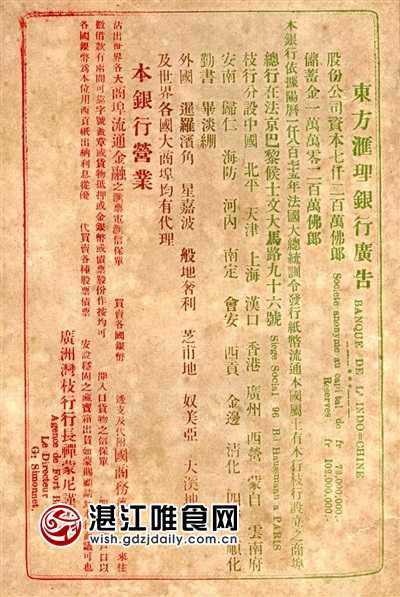 東方滙理銀行廣告
BANQUE DE L' INDO=CHINE
股份公司資本七仟二百萬佛郎
Societe anonyme au capital de fr 72,000,000.-
儲蓄金一萬萬零二百萬佛郎
Reserves fr 102,000,000.-
本銀行依據陽曆一仟八百七十五年法國大總統訓令發行紙幣流通本國屬土有本行枝行設立之商埠
總行在法京巴黎候士文大馬路九十六號
Siege Social 96 Bd Haussmann a PARIS
枝行分設中國 北平 天津 上海 漢口 香港 廣州 西營 蒙自 雲南府
安南 歸仁 海防 河內 南定 會安 西貢 金邊 清化 順化
勤書 畢淡綳
外國 暹羅濱角 星嘉波 般地奢利 芝市地 奴美亞 大溪地
及世界各國大商埠均有代理
本銀行營業
沽出世界各大商埠流通金融之滙票電滙信保單 買賣各國銀幣 透支及代附國商務 來往
數借款有兩間可靠字號蓋章或貨物抵押或金銀幣或債票股份作按均可 開入口貨物之信保單 戶口以
各國銀幣為本位用西貢紙出納利息從優 代買賣各種股票債票 安設穩固之藏寶箱出賃如蒙賜顧請 也
廣洲灣枝行行長禪蒙尼謹
Agence de Fort B
Le Directeur
G. Simonnet.
湛江唯食网
www.gdzjdaily.com.cn